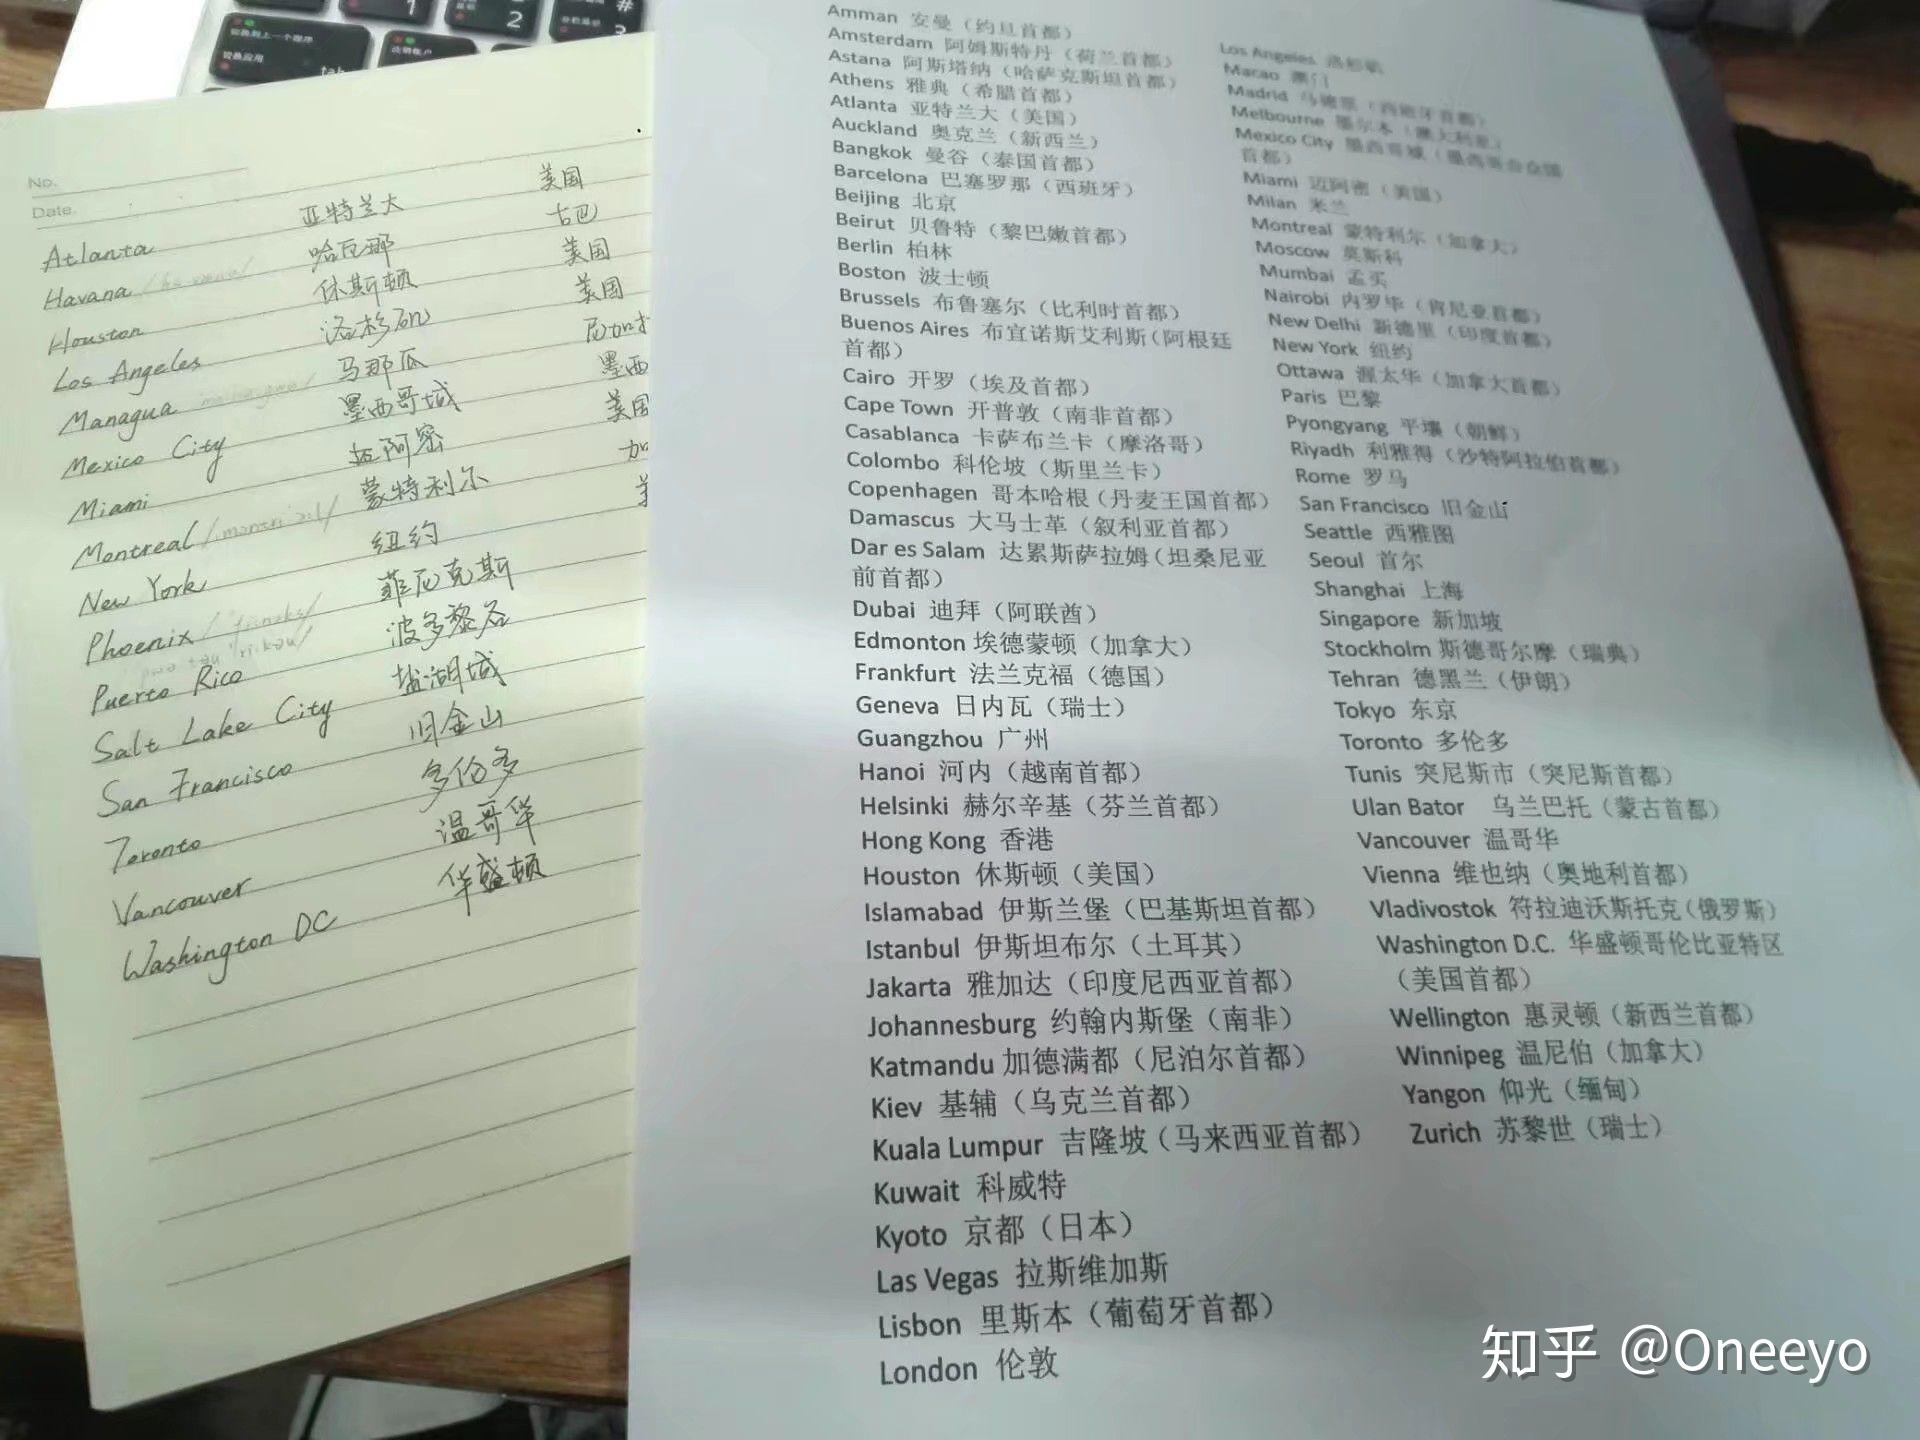 1
2
#
3
切换到上一个程序
切换应用
tab
No.
Date.
Atlanta 亚特兰大 美国
Havana 哈瓦那 古巴
Houston 休斯顿 美国
Los Angeles 洛杉矶 美国
Managua 马那瓜 尼加
Mexico City 墨西哥城 墨西
Miami 迈阿密 美国
Montreal 蒙特利尔 加
New York 纽约
Phoenix 菲尼克斯
Puerto Rico 波多黎各
Salt Lake City 盐湖城
San Francisco 旧金山
Toronto 多伦多
Vancouver 温哥华
Washington DC 华盛顿
Amman 安曼（约旦首都）
Amsterdam 阿姆斯特丹（荷兰首都）
Astana 阿斯塔纳（哈萨克斯坦首都）
Athens 雅典（希腊首都）
Atlanta 亚特兰大（美国）
Auckland 奥克兰（新西兰）
Bangkok 曼谷（泰国首都）
Barcelona 巴塞罗那（西班牙）
Beijing 北京
Beirut 贝鲁特（黎巴嫩首都）
Berlin 柏林
Boston 波士顿
Brussels 布鲁塞尔（比利时首都）
Buenos Aires 布宜诺斯艾利斯（阿根廷
首都）
Cairo 开罗（埃及首都）
Cape Town 开普敦（南非首都）
Casablanca 卡萨布兰卡（摩洛哥）
Colombo 科伦坡（斯里兰卡）
Copenhagen 哥本哈根（丹麦王国首都）
Damascus 大马士革（叙利亚首都）
Dar es Salam 达累斯萨拉姆（坦桑尼亚
前首都）
Dubai 迪拜（阿联酋）
Edmonton 埃德蒙顿（加拿大）
Frankfurt 法兰克福（德国）
Geneva 日内瓦（瑞士）
Guangzhou 广州
Hanoi 河内（越南首都）
Helsinki 赫尔辛基（芬兰首都）
Hong Kong 香港
Houston 休斯顿（美国）
Islamabad 伊斯兰堡（巴基斯坦首都）
Istanbul 伊斯坦布尔（土耳其）
Jakarta 雅加达（印度尼西亚首都）
Johannesburg 约翰内斯堡（南非）
Katmandu 加德满都（尼泊尔首都）
Kiev 基辅（乌克兰首都）
Kuala Lumpur 吉隆坡（马来西亚首都）
Kuwait 科威特
Kyoto 京都（日本）
Las Vegas 拉斯维加斯
Lisbon 里斯本（葡萄牙首都）
London 伦敦
Los Angeles 洛杉矶
Macao 澳门
Madrid 马德里（西班牙首都）
Melbourne 墨尔本（澳大利亚）
Mexico City 墨西哥城（墨西哥合众国
首都）
Miami 迈阿密（美国）
Milan 米兰
Montreal 蒙特利尔（加拿大）
Moscow 莫斯科
Mumbai 孟买
Nairobi 内罗毕（肯尼亚首都）
New Delhi 新德里（印度首都）
New York 纽约
Ottawa 渥太华（加拿大首都）
Paris 巴黎
Pyongyang 平壤（朝鲜）
Riyadh 利雅得（沙特阿拉伯首都）
Rome 罗马
San Francisco 旧金山
Seattle 西雅图
Seoul 首尔
Shanghai 上海
Singapore 新加坡
Stockholm 斯德哥尔摩（瑞典）
Tehran 德黑兰（伊朗）
Tokyo 东京
Toronto 多伦多
Tunis 突尼斯市（突尼斯首都）
Ulan Bator 乌兰巴托（蒙古首都）
Vancouver 温哥华
Vienna 维也纳（奥地利首都）
Vladivostok 符拉迪沃斯托克（俄罗斯）
Washington D.C. 华盛顿哥伦比亚特区
（美国首都）
Wellington 惠灵顿（新西兰首都）
Winnipeg 温尼伯（加拿大）
Yangon 仰光（缅甸）
Zurich 苏黎世（瑞士）
知乎 @Oneeyo